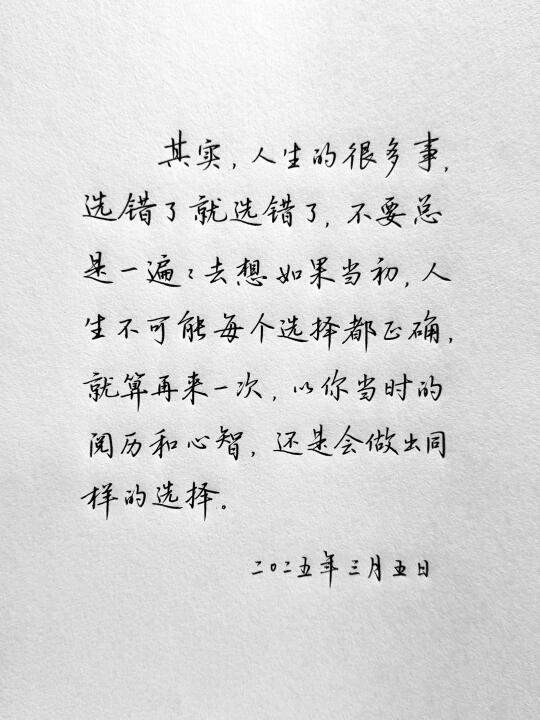 其实，人生的很多事，
选错了就选错了，不要总
是一遍〻去想如果当初，人
生不可能每个选择都正确，
就算再来一次，以你当时的
阅历和心智，还是会做出同
样的选择。
二〇二五年三月五日